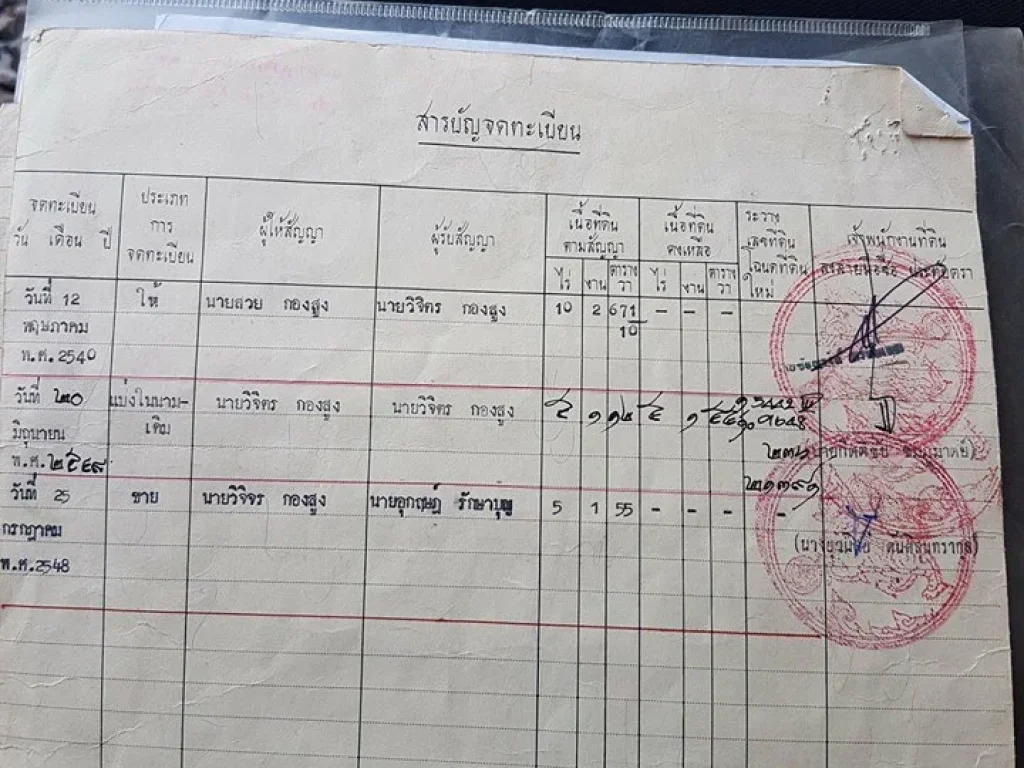 สารบัญจดทะเบียน
จดทะเบียน
วัน เดือน ปี
ประเภท
การ
จดทะเบียน
ผู้ให้สัญญา
ผู้รับสัญญา
เนื้อที่ดิน
ตามสัญญา
ไร่ งาน ตาราง
วา
เนื้อที่ดิน
คงเหลือ
ไร่ งาน ตาราง
วา
ระวาง
เลขที่ดิน
โฉนดที่ดิน
ใหม่
เจ้าพนักงานที่ดิน
ลงลายมือชื่อ ประทับตรา
วันที่ 12 ให้ นายสวย กองสูง นายวิจิตร กองสูง 10 2 67 1/10 - - -
พฤษภาคม
พ.ศ.2540
วันที่ ๒๐ แบ่งในนาม- นายวิจิตร กองสูง นายวิจิตร กองสูง ๕ ๑ ๑๒ ๕ ๑
มิถุนายน เดิม
พ.ศ.
วันที่ 25 ขาย นายวิจิตร กองสูง นายอุกฤษฎ์ รักษาบุญ 5 1 55 - - - -
กรกฎาคม
พ.ศ.2548